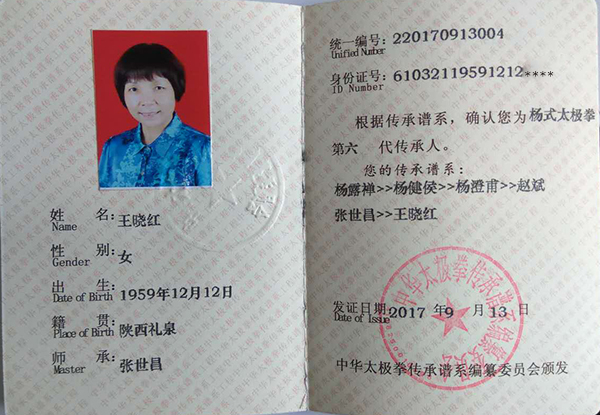 姓 名: 王晓红
Name
性 别: 女
Gender
出 生: 1959年12月12日
Date of Birth
籍 贯: 陕西礼泉
Place of Birth
师 承: 张世昌
Master
统一编号: 220170913004
Unified Number
身份证号: 61032119591212****
ID Number
根据传承谱系，确认您为杨式太极拳
第六 代传承人。
您的传承谱系:
杨露禅>>杨健侯>>杨澄甫>>赵斌
张世昌>>王晓红
中华太极拳传承谱系编纂委员会
发证日期: 2017 年 9 月 13 日
Date of Issue
中华太极拳传承谱系编纂委员会颁发